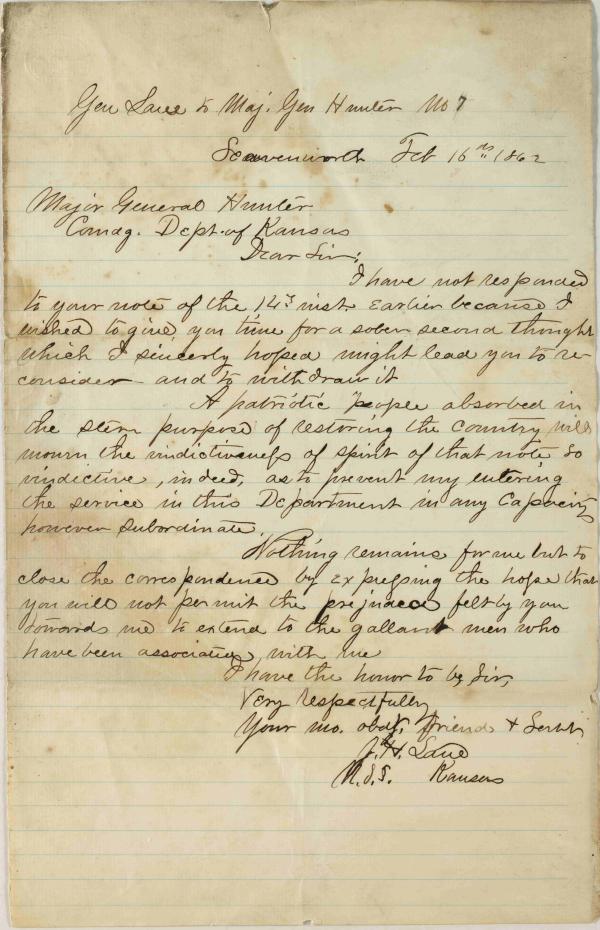 Gen Lane to Maj. Gen Hunter No 7
Leavenworth Feb 16th 1862
Major General Hunter
Comdg. Dept. of Kansas
Dear Sir;
I have not responded
to your note of the 14th inst. Earlier because I
wished to give you time for a sober second thought
which I sincerly hoped might lead you to re-
consider and to withdraw it
A patriotic people absorbed in
the stern purpose of restoring the Country will
mourn the vindictiveness of spirit of that note So
vindictive, indeed, as to prevent my entering
the service in this Department in any Capacity
however subordinate.
Nothing remains for me but to
close the correspondence by Expressing the hope that
you will not permit the prejudice felt by you
towards me to extend to the gallant men who
have been associated with me
I have the honor to be, Sir,
Very respectfully
Your mo. obdt. friend & Servt,
J. H. Lane
U.S.S. Kansas